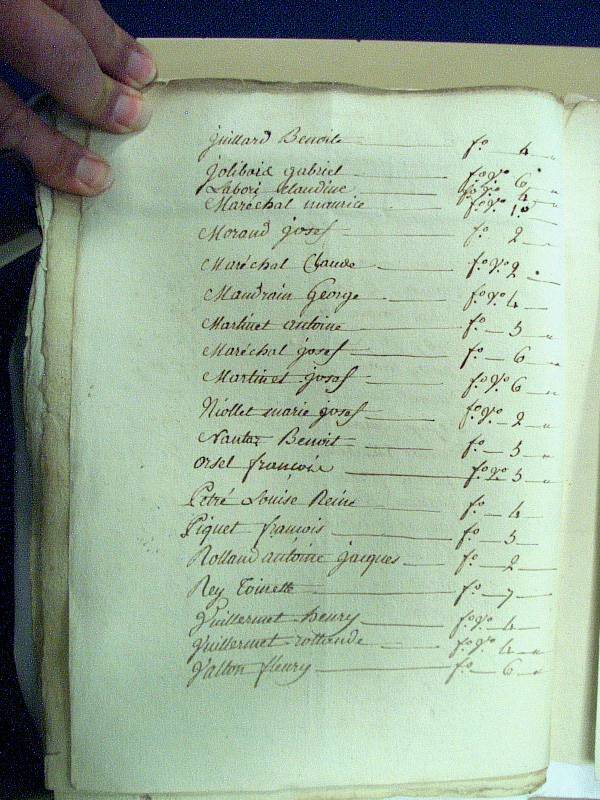 Juillard Benoite — f.° 4
Jolibois gabriel — f.° v.° 6
Labori Claudine — f.° v.° 4
Maréchal maurice — f.° v.° 1.°
Morand josef — f.° 2
Maréchal Claude — f.° v.° 2
Mandrain George — f.° v.° 4
Martinet antoine — f.° — 5
Maréchal josef — f.° — 6
Martinet josef — f.° v.° 6
Niollet marie josef — f.° v.° — 2
Nantaz Benoit — f.° — 3
Orsel françoise — f.° v.° 3
Petré Louise Reine — f.° — 4
Piquet françois — f.° — 3
Rolland antoine jacques — f.° — 2
Rey Toinette — f.° — 7
Vuillermet henry — f.° v.° — 4
Vuillermet rollande — f.° v.° 4
Vallon fleury — f.° — 6